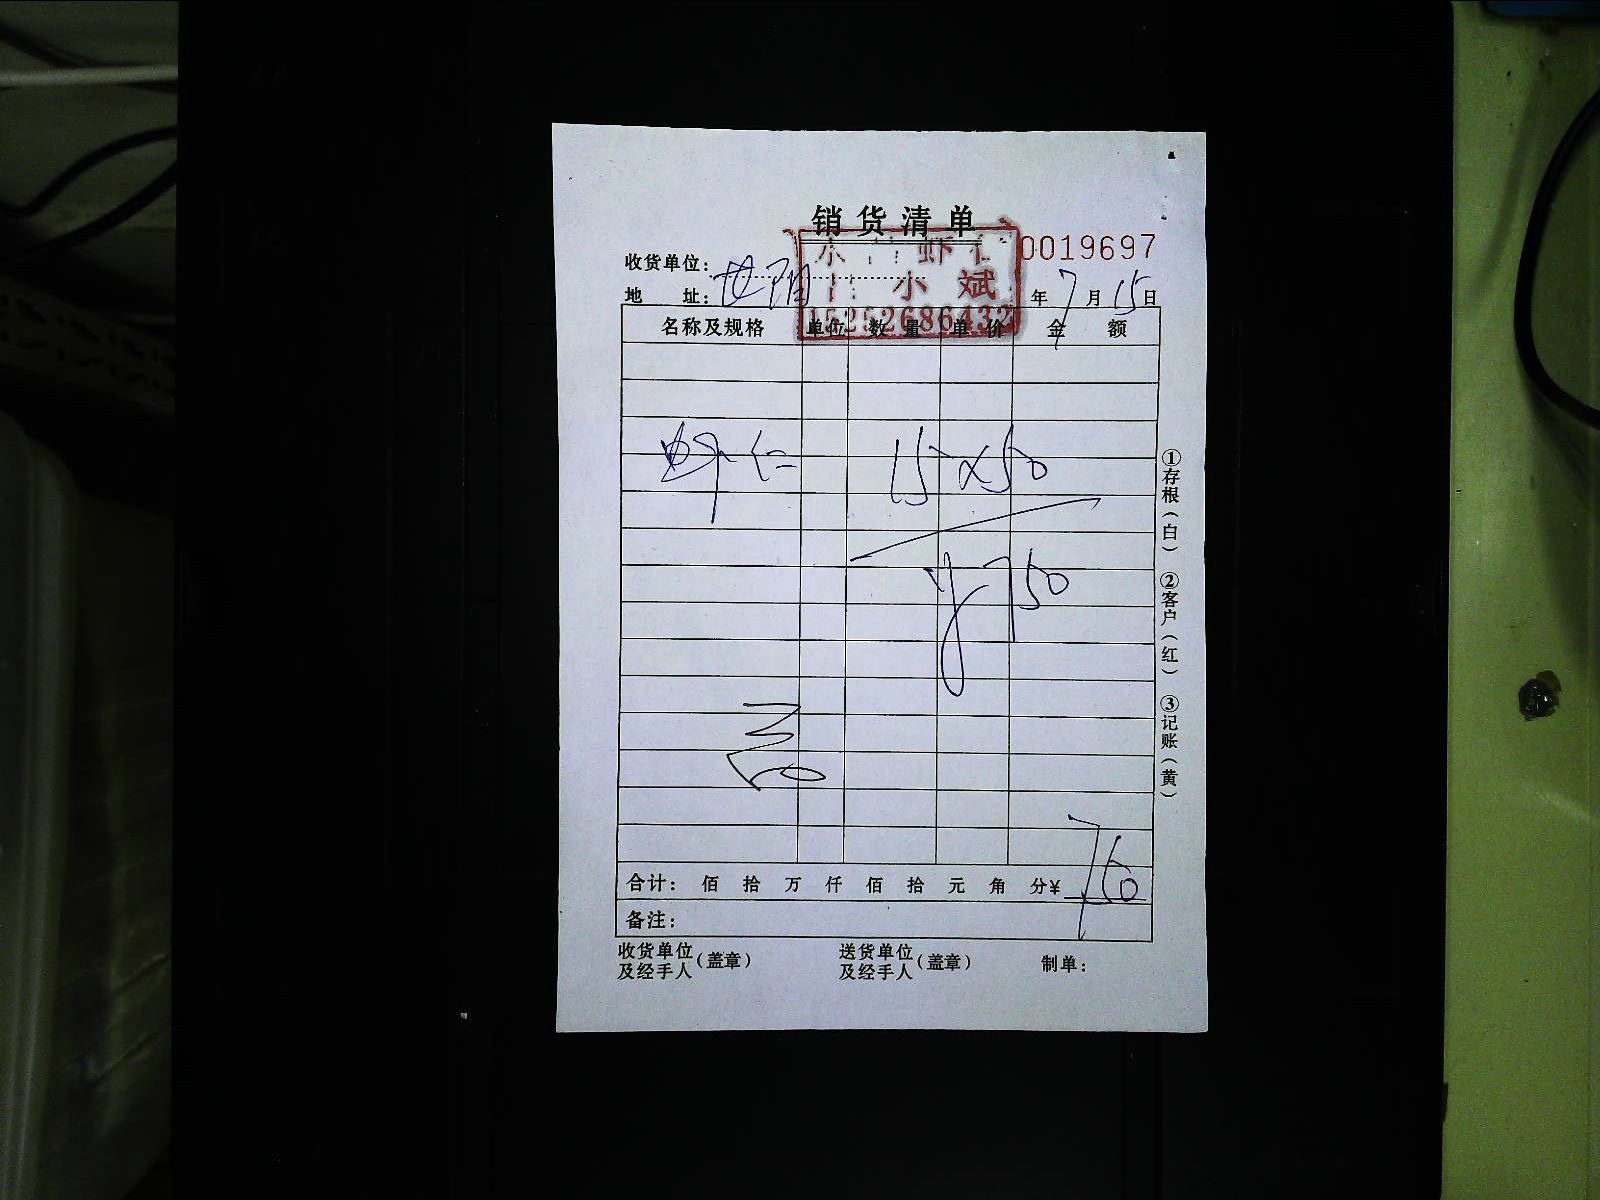 销货清单
0019697
收货单位：
虾
小斌
15252686432
地 址： 年 7 月 15 日
名称及规格 单位 数量 单价 金额
虾仁 15×50
¥750
合计： 佰 拾 万 仟 佰 拾 元 角 分¥ 750
备注：
收货单位及经手人（盖章） 送货单位及经手人（盖章） 制单：
①存根（白） ②客户（红） ③记账（黄）